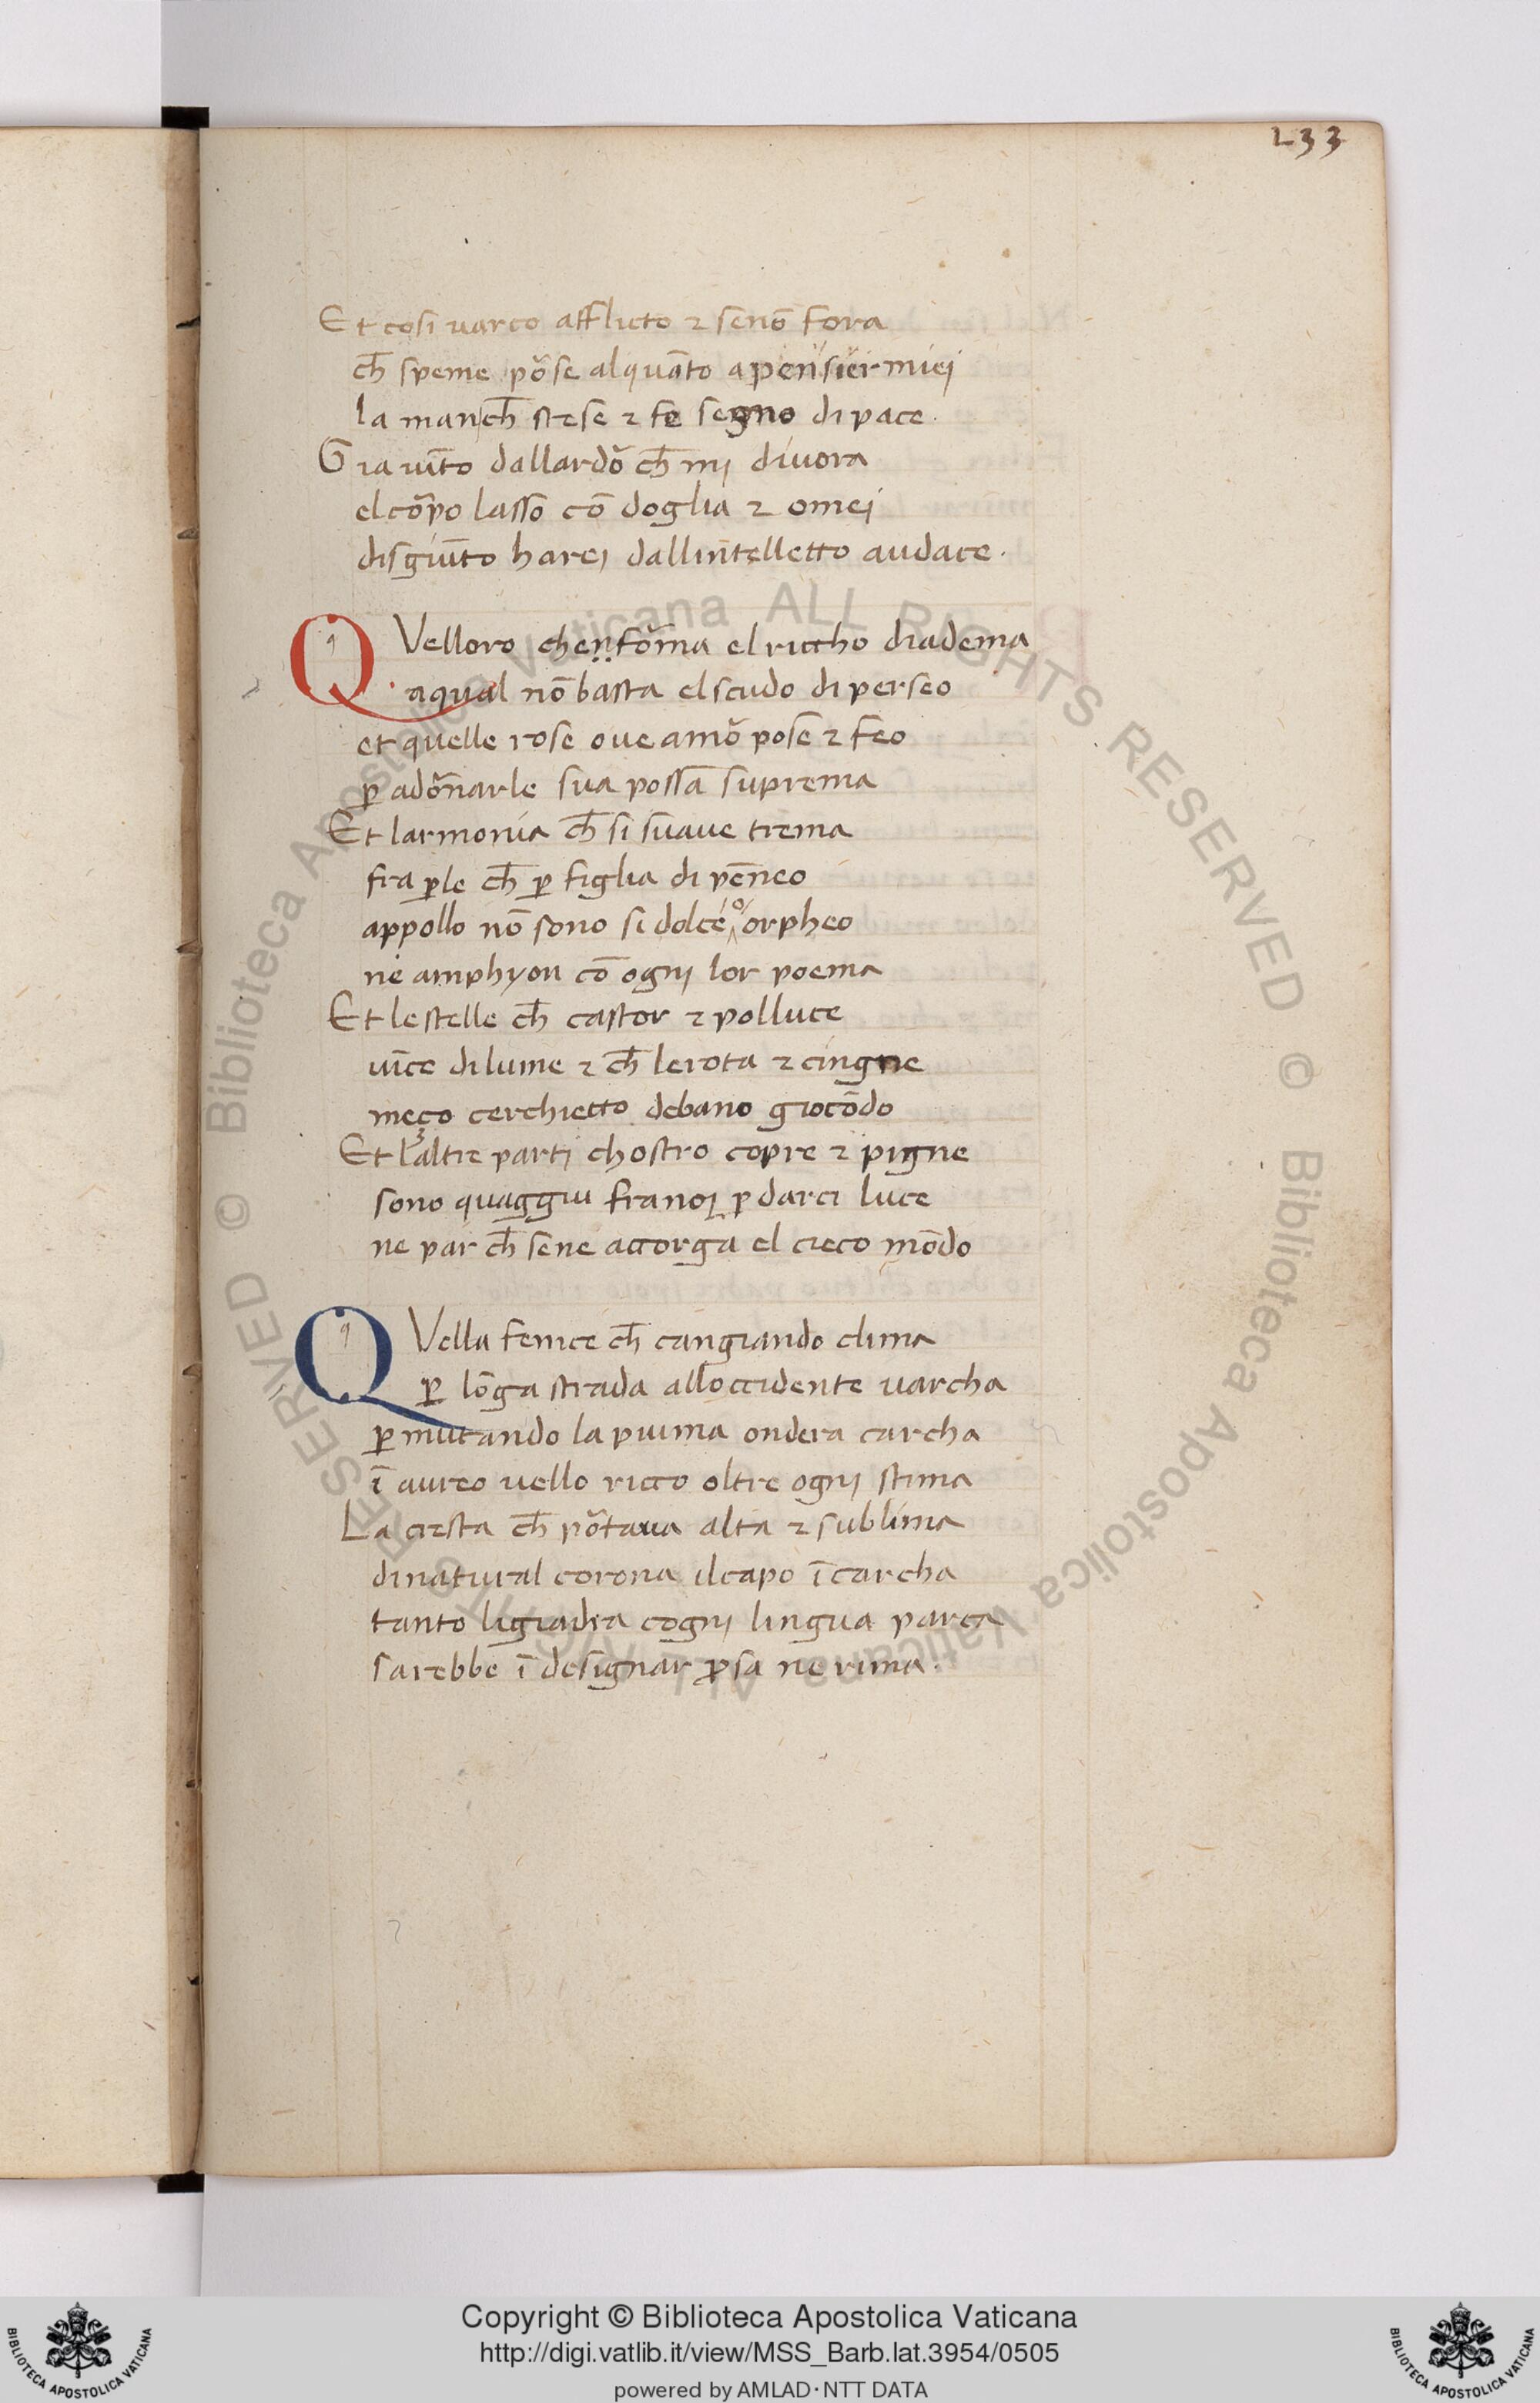 233
Et cosi varco afflicto ⁊ senō fora
ch̄ speme pōse alquāto a pensier miei
la man ch̄ stese ⁊ fe segno di pace.
Gia vīto dallardō ch̄ mi divora
el cōrpo lasso cō doglia ⁊ omei
disgiūto harei dallintelletto audace.
QVelloro chenfōrma el riccho diadema
aqual nō basta el scudo di perseo
et quelle rose ove amō pose ⁊ feo
p̱ adōrnarle sua possa suprema
Et larmonia ch̄ si suave trema
fra p̱le ch̄ p̱ figlia di peneo
appollo nō sono si dolce o orpheo
ne amphyon cō ogni lor poema
Et le stelle ch̄ castor ⁊ polluce
vīce di lume ⁊ ch̄ le rota ⁊ cingne
meço cerchietto debano giocōdo
Et laltre parti chostro copre ⁊ pigne
sono quaggiu fra noi p̱ darci luce
ne par ch̄ sene accorga el cieco mōdo
QVella fenice ch̄ cangiando clima
p̱ lōga strada alloccidente varcha
p̱mutando la piuma ondera carcha
ī aureo vello ricco oltre ogni stima
La cresta ch̄ pōrtava alta ⁊ sublima
di natural corona il capo īcarcha
tanto ligiadra cogni lingua parca
sarebbe ī designar p̱sa ne rima.
© Biblioteca Apostolica Vaticana ALL RIGHTS RESERVED © Biblioteca Apostolica Vaticana ALL RIGHTS RESERVED
Copyright © Biblioteca Apostolica Vaticana
http://digi.vatlib.it/view/MSS_Barb.lat.3954/0505
powered by AMLAD·NTT DATA
BIBLIOTECA APOSTOLICA VATICANA
BIBLIOTECA APOSTOLICA VATICANA